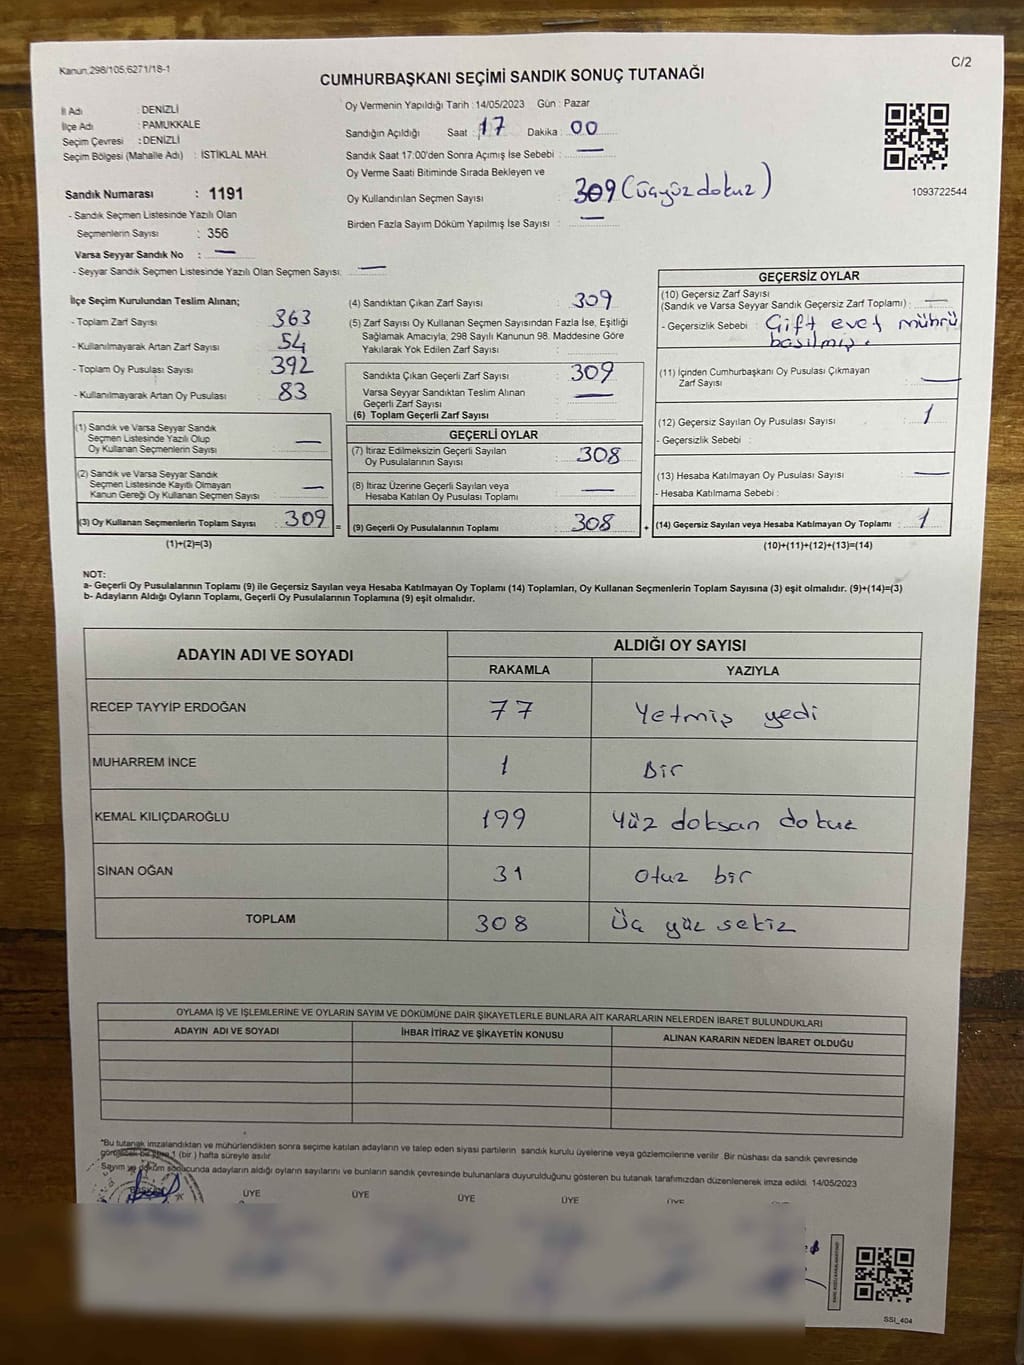 Kanun,298/105,6271/18-1
C/2
CUMHURBAŞKANI SEÇİMİ SANDIK SONUÇ TUTANAĞI
İl Adı : DENİZLİ
İlçe Adı : PAMUKKALE
Seçim Çevresi : DENİZLİ
Seçim Bölgesi (Mahalle Adı) : İSTİKLAL MAH.
Sandık Numarası : 1191
- Sandık Seçmen Listesinde Yazılı Olan
Seçmenlerin Sayısı : 356
Varsa Seyyar Sandık No : —
- Seyyar Sandık Seçmen Listesinde Yazılı Olan Seçmen Sayısı: —
Oy Vermenin Yapıldığı Tarih : 14/05/2023 Gün : Pazar
Sandığın Açıldığı Saat : 17 Dakika : 00
Sandık Saat 17:00'den Sonra Açımış İse Sebebi : —
Oy Verme Saati Bitiminde Sırada Bekleyen ve
Oy Kullandırılan Seçmen Sayısı : 309 (üçyüz dokuz)
Birden Fazla Sayım Döküm Yapılmış İse Sayısı : —
1093722544
İlçe Seçim Kurulundan Teslim Alınan;
- Toplam Zarf Sayısı 363
- Kullanılmayarak Artan Zarf Sayısı 54
- Toplam Oy Pusulası Sayısı 392
- Kullanılmayarak Artan Oy Pusulası 83
(1) Sandık ve Varsa Seyyar Sandık
Seçmen Listesinde Yazılı Olup
Oy Kullanan Seçmenlerin Sayısı —
(2) Sandık ve Varsa Seyyar Sandık
Seçmen Listesinde Kayıtlı Olmayan
Kanun Gereği Oy Kullanan Seçmen Sayısı —
(3) Oy Kullanan Seçmenlerin Toplam Sayısı : 309 =
(1)+(2)=(3)
(4) Sandıktan Çıkan Zarf Sayısı : 309
(5) Zarf Sayısı Oy Kullanan Seçmen Sayısından Fazla İse, Eşitliği
Sağlamak Amacıyla, 298 Sayılı Kanunun 98. Maddesine Göre
Yakılarak Yok Edilen Zarf Sayısı :
Sandıkta Çıkan Geçerli Zarf Sayısı : 309
Varsa Seyyar Sandıktan Teslim Alınan
Geçerli Zarf Sayısı : —
(6) Toplam Geçerli Zarf Sayısı :
GEÇERLİ OYLAR
(7) İtiraz Edilmeksizin Geçerli Sayılan
Oy Pusulalarının Sayısı : 308
(8) İtiraz Üzerine Geçerli Sayılan veya
Hesaba Katılan Oy Pusulası Toplamı : —
(9) Geçerli Oy Pusulalarının Toplamı : 308 +
GEÇERSİZ OYLAR
(10) Geçersiz Zarf Sayısı
(Sandık ve Varsa Seyyar Sandık Geçersiz Zarf Toplamı) : —
- Geçersizlik Sebebi : Çift evet mührü
basılmış.
(11) İçinden Cumhurbaşkanı Oy Pusulası Çıkmayan
Zarf Sayısı : —
(12) Geçersiz Sayılan Oy Pusulası Sayısı : 1
- Geçersizlik Sebebi :
(13) Hesaba Katılmayan Oy Pusulası Sayısı : —
- Hesaba Katılmama Sebebi :
(14) Geçersiz Sayılan veya Hesaba Katılmayan Oy Toplamı : 1
(10)+(11)+(12)+(13)=(14)
NOT:
a- Geçerli Oy Pusulalarının Toplamı (9) ile Geçersiz Sayılan veya Hesaba Katılmayan Oy Toplamı (14) Toplamları, Oy Kullanan Seçmenlerin Toplam Sayısına (3) eşit olmalıdır. (9)+(14)=(3)
b- Adayların Aldığı Oyların Toplamı, Geçerli Oy Pusulalarının Toplamına (9) eşit olmalıdır.
ADAYIN ADI VE SOYADI
ALDIĞI OY SAYISI
RAKAMLA YAZIYLA
RECEP TAYYİP ERDOĞAN 77 Yetmiş yedi
MUHARREM İNCE 1 Bir
KEMAL KILIÇDAROĞLU 199 Yüz doksan dokuz
SİNAN OĞAN 31 Otuz bir
TOPLAM 308 Üç yüz sekiz
OYLAMA İŞ VE İŞLEMLERİNE VE OYLARIN SAYIM VE DÖKÜMÜNE DAİR ŞİKAYETLERLE BUNLARA AİT KARARLARIN NELERDEN İBARET BULUNDUKLARI
ADAYIN ADI VE SOYADI İHBAR İTİRAZ VE ŞİKAYETİN KONUSU ALINAN KARARIN NEDEN İBARET OLDUĞU
*Bu tutanak imzalandıktan ve mühürlendikten sonra seçime katılan adayların ve talep eden siyasi partilerin sandık kurulu üyelerine veya gözlemcilerine verilir. Bir nüshası da sandık çevresinde
görülecek bir yere 1 (bir ) hafta süreyle asılır
Sayım ve döküm sonucunda adayların aldığı oyların sayılarını ve bunların sandık çevresinde bulunanlara duyurulduğunu gösteren bu tutanak tarafımızdan düzenlenerek imza edildi. 14/05/2023
BAŞKAN ÜYE ÜYE ÜYE ÜYE ÜYE
SSİ_404